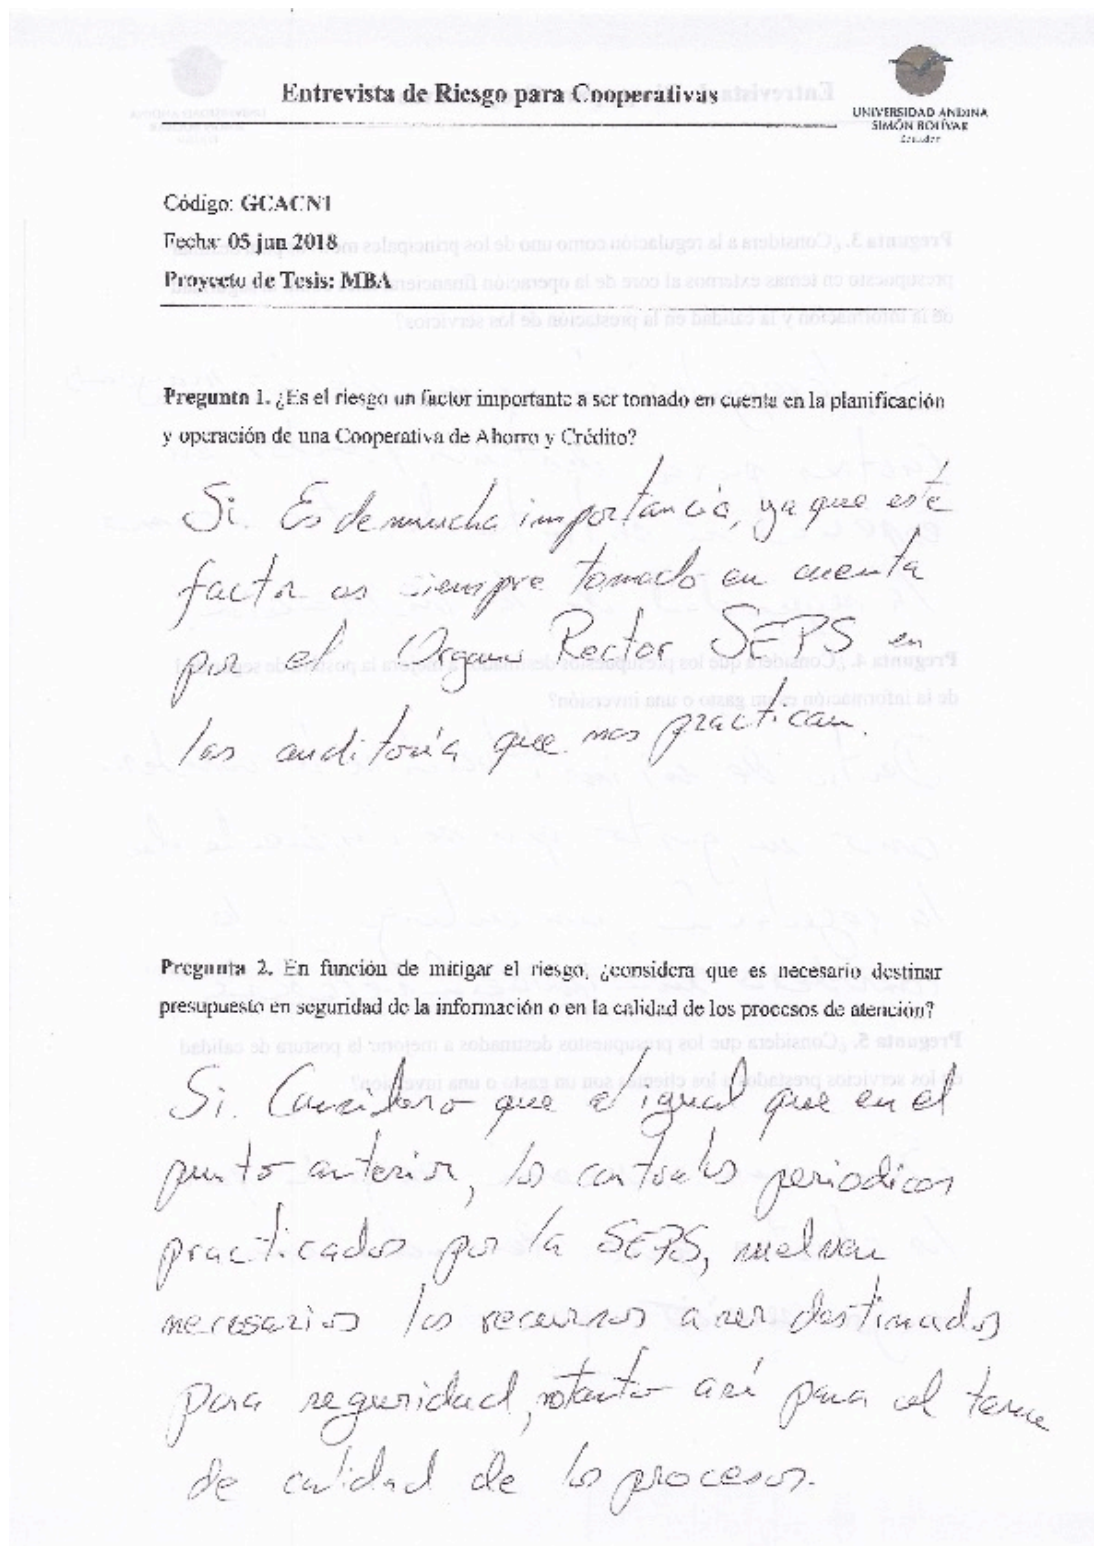 Entrevista de Riesgo para Cooperativas
UNIVERSIDAD ANDINA
SIMÓN BOLÍVAR
Ecuador
Código: GCACN1
Fecha: 05 jun 2018
Proyecto de Tesis: MBA
Pregunta 1. ¿Es el riesgo un factor importante a ser tomado en cuenta en la planificación
y operación de una Cooperativa de Ahorro y Crédito?
Si. Es de mucha importancia, ya que este
factor es siempre tomado en cuenta
por el Organo Rector SEPS en
las auditoría que nos practican.
Pregunta 2. En función de mitigar el riesgo, ¿considera que es necesario destinar
presupuesto en seguridad de la información o en la calidad de los procesos de atención?
Si. Considero que al igual que en el
punto anterior, los controles periodicos
practicados por la SEPS, vuelven
necesarios los recursos a ser destinados
para seguridad, no tanto así para el tema
de calidad de los procesos.